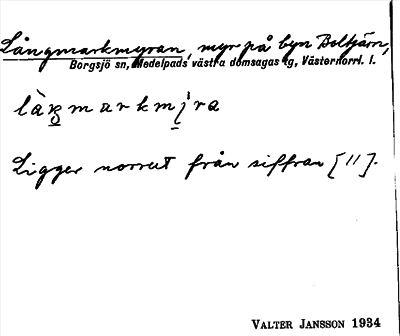 Långmarkmyran, myr på byn Beltjärn,
Borgsjö sn, Medelpads västra domsagas tg, Västernorrl. l.
Ligger norrut från siffran [11].
VALTER JANSSON 1934